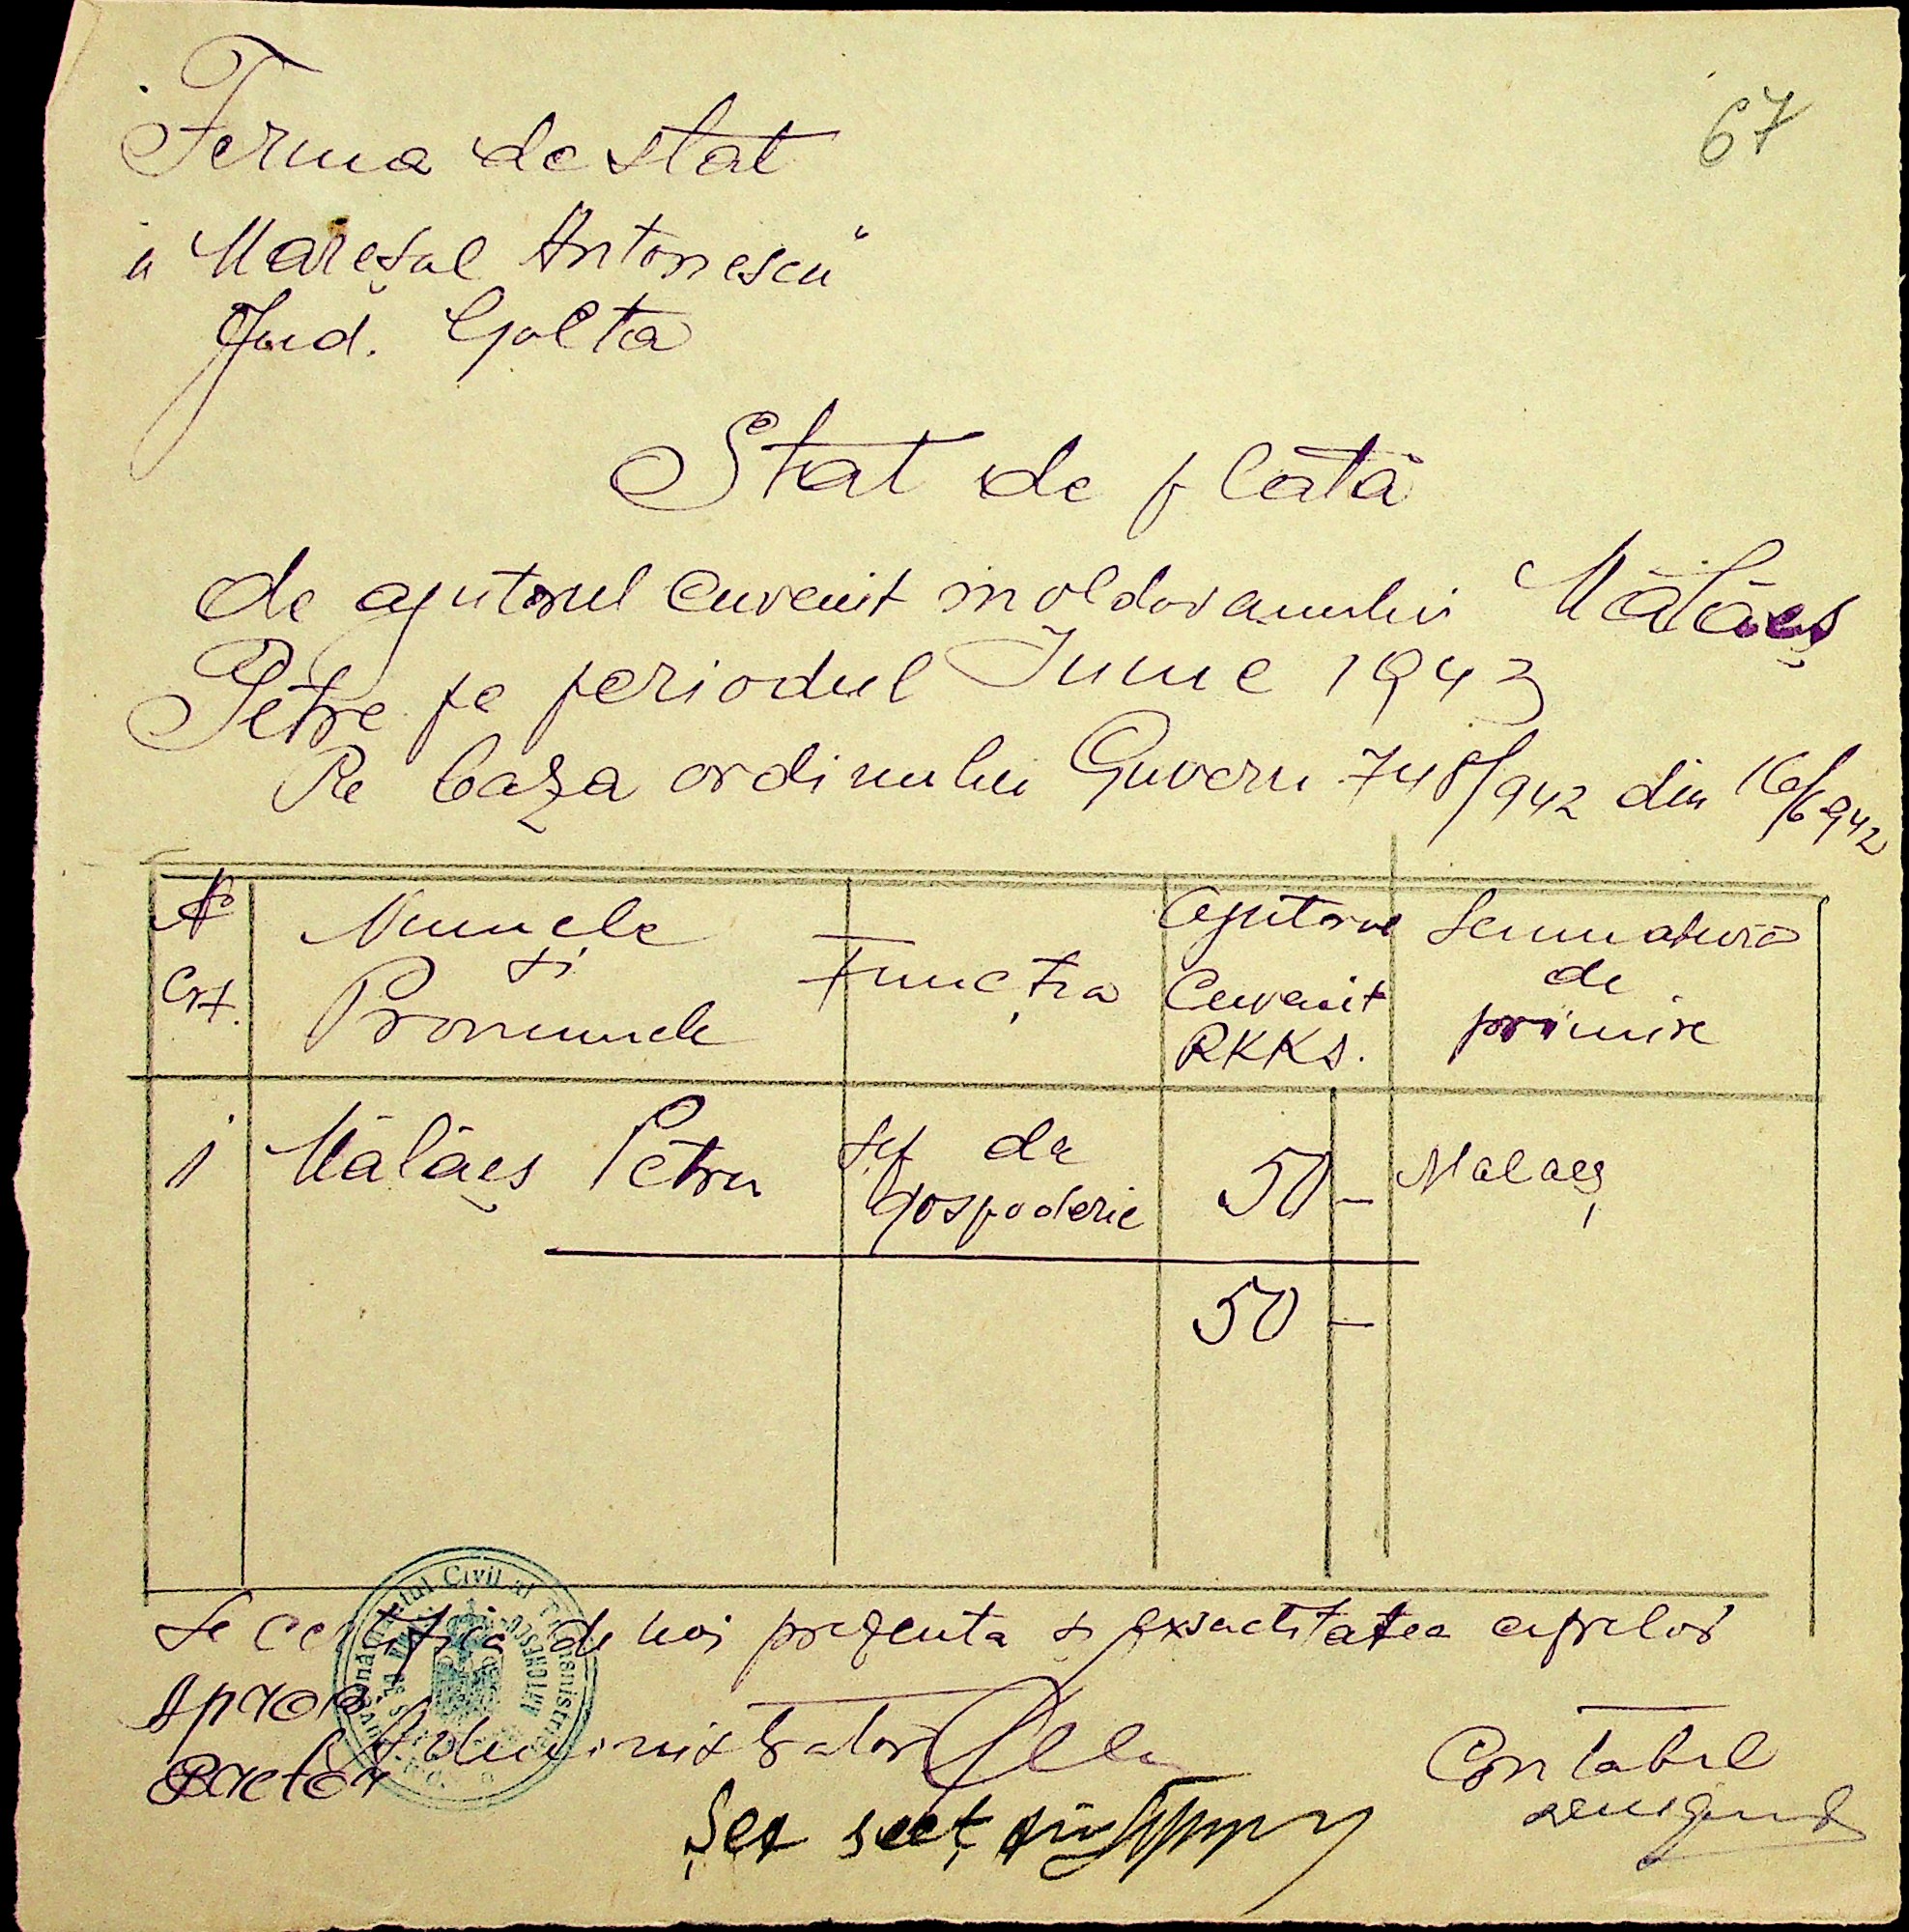 67
Ferma de stat
"Mareșal Antonescu"
Jud. Golta
Stat de plată
de ajutorul cuvenit moldovanului Mălăeș
Petre pe periodul Iunie 1943
Pe baza ordinului Guvern 748/942 din 16/6 942
N
Crt.
Numele
și
Pronumele
Funcția
Ajutorul
Cuvenit
RKKS.
Semnatura
de
primire
1 Mălăeș Petru șef de gospoderie 50 - Malaeș
50 -
Se certifică de noi prezenta și exsactitatea cifrelor
Aprob
Pretor
Administrator
Contabil
Șef secț
Civil al Transnistriei